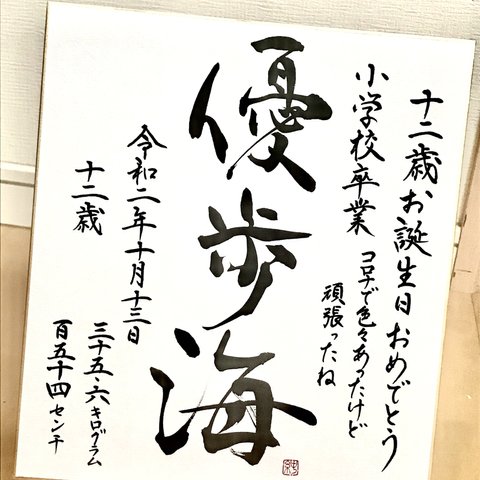 十二歳お誕生日おめでとう
小学校卒業
コロナで色々あったけど
頑張ったね
優歩海
令和二年十月十三日
十二歳
三十五.六キログラム
百五十四センチ